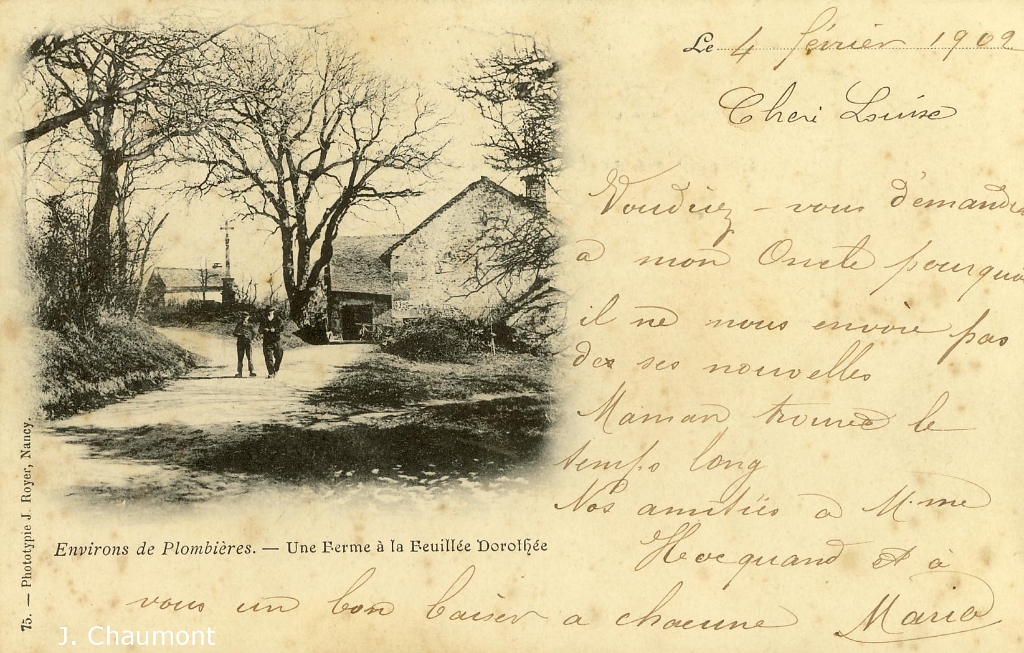 Le 4 février 1902
Cheri Louise
Voudriez-vous demander
a mon Oncle pourquoi
il ne nous envoie pas
des ses nouvelles
Maman trouve le
temps long
Nos amitiés a Mme
Hocquand et à
vous un bon baiser a chacune Maria
Environs de Plombières. — Une Ferme à la Feuillée Dorothée
75. — Phototypie J. Royer, Nancy.
J. Chaumont